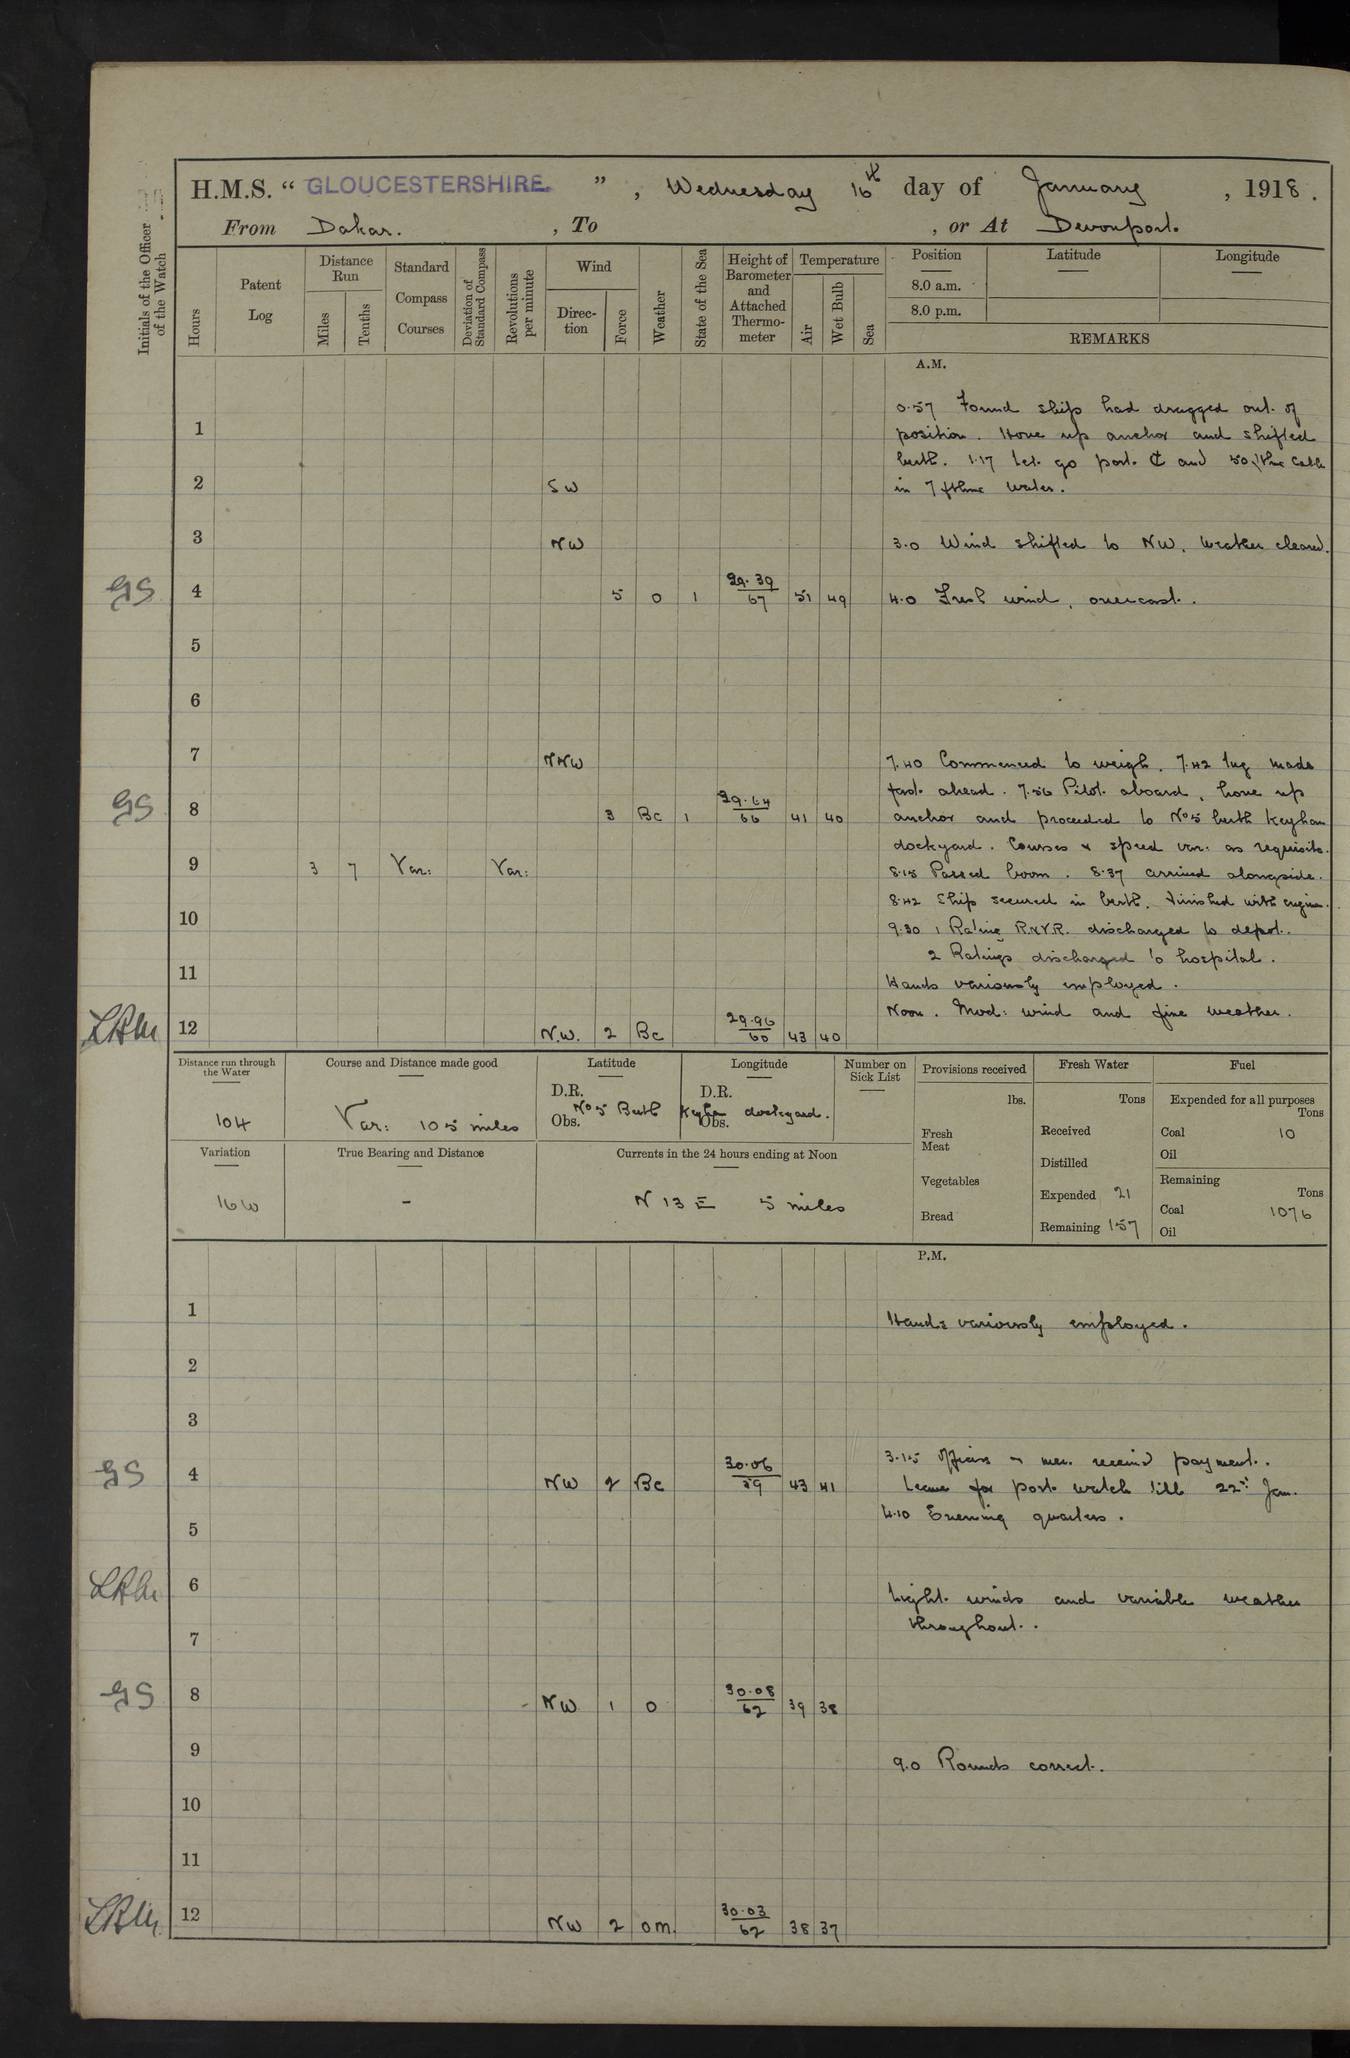 H.M.S. " GLOUCESTERSHIRE. " , Wednesday 16th day of January , 1918 .
From Dakar. , To , or At Devonport.
Initials of the Officer of the Watch
Hours
Patent Log
Distance Run
Miles
Tenths
Standard Compass Courses
Deviation of Standard Compass
Revolutions per minute
Wind
Direction
Force
Weather
State of the Sea
Height of Barometer and Attached Thermometer
Temperature
Air
Wet Bulb
Sea
Position
8.0 a.m.
8.0 p.m.
Latitude
Longitude
REMARKS
A.M.
0.57 Found ship had dragged out of
1 position. Hove up anchor and shifted
berth. 1.17 Let go port ₵ and 50 fthms cable
2 SW in 7 fthms water.
3 NW 3.0 Wind shifted to NW. weather cleared.
GS 4 5 o 1 29.39/67 51 49 4.0 Fresh wind, overcast.
5
6
7 NNW 7.40 Commenced to weigh. 7.42 tug made
fast ahead. 7.56 Pilot aboard, hove up
GS 8 3 Bc 1 29.64/66 41 40 anchor and proceeded to No 5 berth Keyham
dockyard. Courses & speed var: as requisite.
9 3 7 Var: Var: 8.15 Passed boom. 8.37 arrived alongside.
8.42 Ship secured in berth. Finished with engines.
10 9.30 1 Rating R.N.V.R. discharged to depot.
2 Ratings discharged to hospital.
11 Hands variously employed.
Noon. Mod: wind and fine weather.
12 N.W. 2 Bc 29.96/60 43 40
Distance run through the Water
104
Course and Distance made good
Var: 105 miles
Latitude
D.R.
Obs.
Longitude
D.R.
Obs.
No 5 Berth Keyham dockyard.
Number on Sick List
Provisions received
lbs.
Fresh Meat
Vegetables
Bread
Fresh Water
Tons
Received
Distilled
Expended 21
Remaining 157
Fuel
Expended for all purposes
Tons
Coal 10
Oil
Remaining
Tons
Coal 1076
Oil
Variation
16 W
True Bearing and Distance
-
Currents in the 24 hours ending at Noon
N 13 E 5 miles
P.M.
1 Hands variously employed.
2
3
3.15 Officers & men received payment.
GS 4 NW 2 Bc 30.06/59 43 41 Leave for port watch till 22nd Jan.
4.10 Evening quarters.
5
6 Light winds and variable weather
throughout.
7
GS 8 NW 1 o 30.08/62 39 38
9 9.0 Rounds correct.
10
11
12 NW 2 om. 30.03/62 38 37